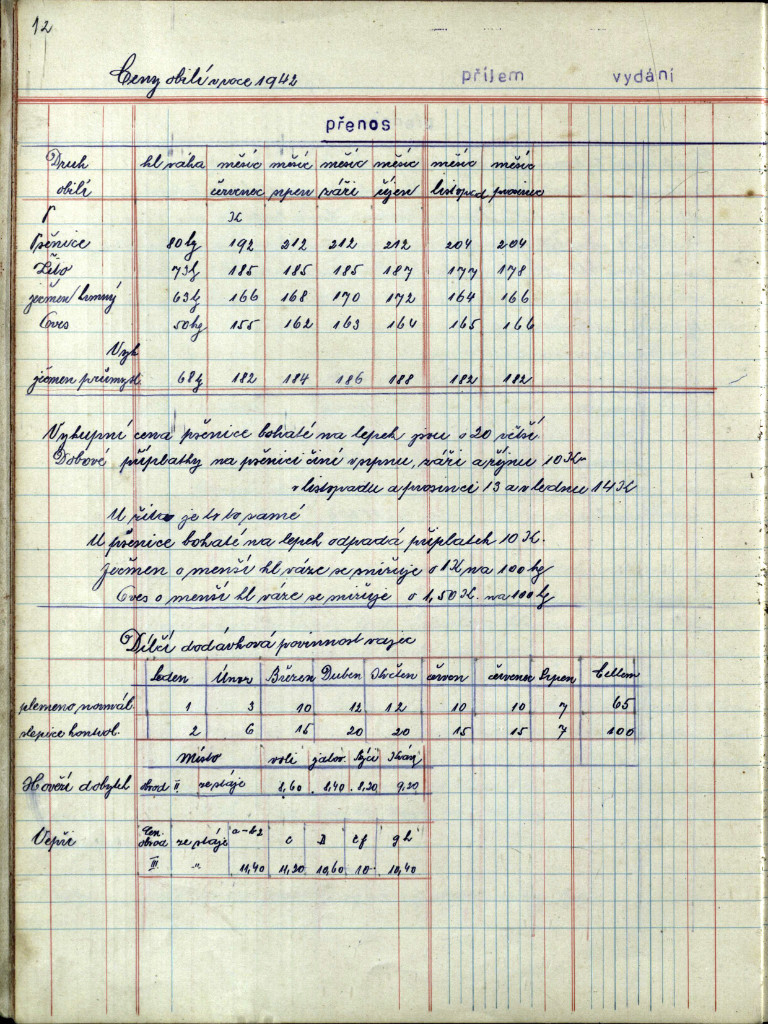 12
Ceny obilí v roce 1942 příjem vydání
přenos
Druh hl váha měsíc měsíc měsíc měsíc měsíc měsíc
obilí červenec srpen září říjen listopad prosinec
K
Pšenice 80 kg 192 212 212 212 204 204
Žito 73 kg 185 185 185 187 177 178
ječmen krmný 63 kg 166 168 170 172 164 166
Oves 50 kg 155 162 163 164 165 166
ječmen průmysl. 68 kg 182 184 186 188 182 182
Výkupní cena pšenice bohaté na lepek jsou o 20 větší
Dobové příplatky na pšenici činí v srpnu, září a říjnu 10 K
v listopadu a prosinci 13 a v lednu 14 K
U žita je to to samé
U pšenice bohaté na lepek odpadá příplatek 10 K.
Ječmen o menší hl váze se snižuje o 1 K na 100 kg
Oves o menší hl váze se snižuje o 1,50 K. na 100 kg
Dílčí dodávková povinnost vajec
Leden Únor Březen Duben Květen červen červenec Srpen Celkem
plemeno normál. 1 3 10 12 12 10 10 7 65
slepice kontrol. 2 6 15 20 20 15 15 7 100
Místo voli jalov. býci krávy
Hovězí dobytek obvod II ze stáje 8,60 8,40 8,20 9,20
Vepři Cen. obvod ze stáje a-b2 c D cf g2
III " 11,40 11,20 10,60 10 10,40